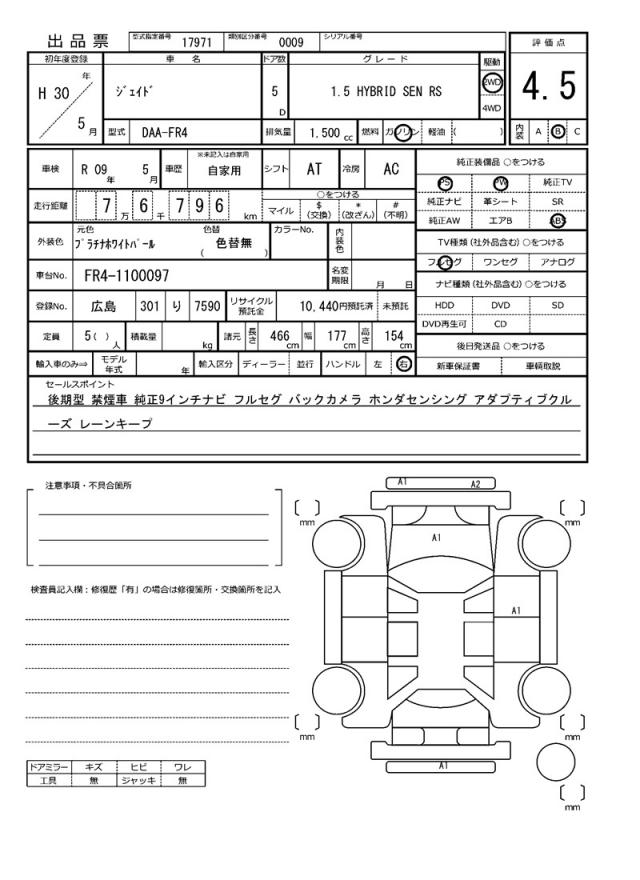 出品票 型式指定番号 17971 類別区分番号 0009 シリアル番号
初年度登録 車名 ドア数 グレード 駆動 評価点
H 30 年 5 月 ジェイド 5 D 1.5 HYBRID SEN RS 2WD 4WD 4.5
型式 DAA-FR4 排気量 1.500 cc 燃料 ガソリン 軽油 ( ) 内装 A B C
車検 R 09 年 5 月 車歴 ※未記入は自家用 自家用 シフト AT 冷房 AC
走行距離 7 万 6 千 7 9 6 km ○をつける マイル $ (交換) * (改ざん) # (不明)
外装色 元色 プラチナホワイトパール 色替 ( 色替無 ) カラーNo. 内装色
車台No. FR4-1100097 名変期限 月 日
登録No. 広島 301 り 7590 リサイクル預託金 10,440円預託済 未預託
定員 5( ) 人 積載量 kg 諸元 長さ 466 cm 幅 177 cm 高さ 154 cm
輸入車のみ⇒ モデル年式 年 輸入区分 ディーラー 並行 ハンドル 左 右
純正装備品 ○をつける
PS PW 純正TV
純正ナビ 革シート SR
純正AW エアB ABS
TV種類 (社外品含む) ○をつける
フルセグ ワンセグ アナログ
ナビ種類 (社外品含む) ○をつける
HDD DVD SD
DVD再生可 CD
後日発送品 ○をつける
新車保証書 車輌取説
セールスポイント
後期型 禁煙車 純正9インチナビ フルセグ バックカメラ ホンダセンシング アダプティブクル
ーズ レーンキープ
注意事項・不具合箇所
検査員記入欄：修復歴「有」の場合は修復箇所・交換箇所を記入
ドアミラー キズ ヒビ ワレ
工具 無 ジャッキ 無
A1 A2
mm mm
A1
A1
mm mm
A1
mm